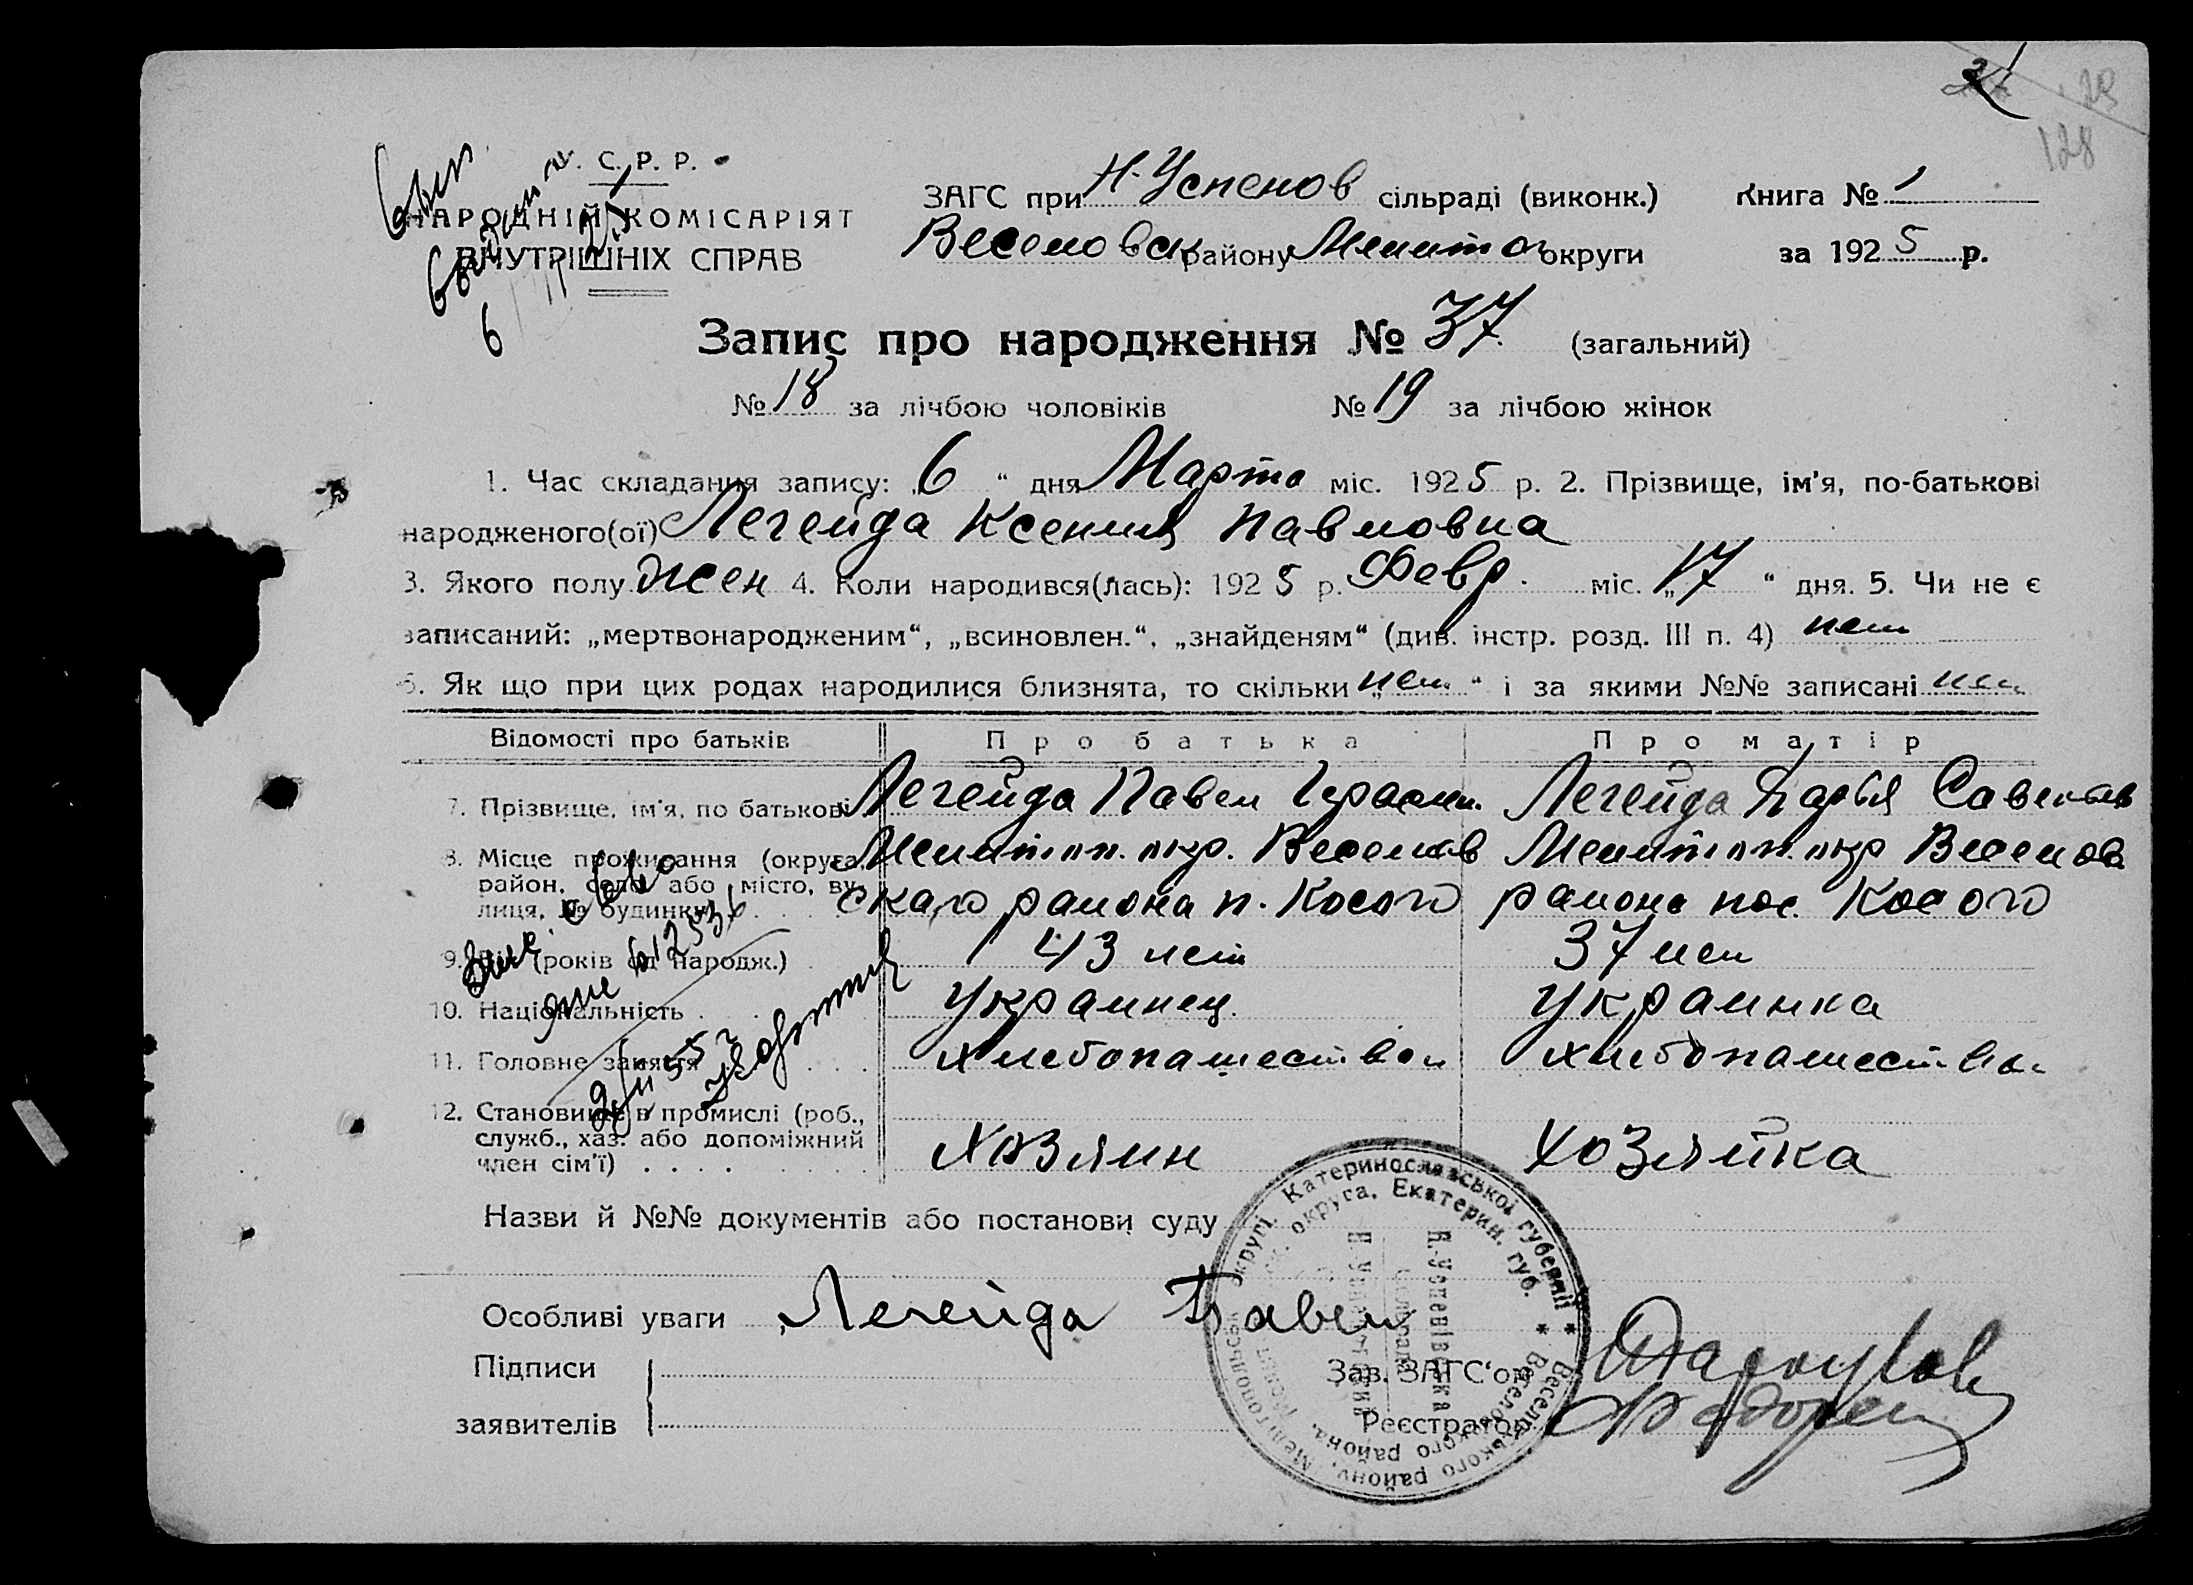 21
128
С. Р. Р.
НАРОДНІЙ КОМІСАРІЯТ
ВНУТРІШНІХ СПРАВ
ЗАГС при Н-Успенов сільраді (виконк.) Книга № 1
Веселовск району Мелитоп округи за 1925 р.
Запис про народження № 37 (загальний)
№ 18 за лічбою чоловіків № 19 за лічбою жінок
1. Час складання запису: „6“ дня Марта міс. 1925 р. 2. Прізвище, ім'я, по-батькові
народженого(ої) Легейда Ксения Павловна
3. Якого полу жен 4. Коли народився(лась): 1925 р. Февр. міс. „17“ дня. 5. Чи не є
записаний: „мертвонародженим“, „всиновлен.“, „знайденям“ (див. інстр. розд. III п. 4) нет
6. Як що при цих родах народилися близнята, то скільки „нет“ і за якими №№ записані нет
Відомості про батьків Про батька Про матір
7. Прізвище, ім'я, по батькові Легейда Павел Герасим. Легейда Дарья Савельев
8. Місце проживання (округа, Мелитоп. окр. Веселов Мелитоп. окр Веселов
район, село або місто, ву-
лиця, № будинку) скаго района п. Косого района пос. Косого
9. Вік (років од народж.) 43 лет 37 лет
10. Національність Украинец Украинка
11. Головне заняття хлебопашеством хлебопашеством
12. Становище в промислі (роб.,
служб., хаз. або допоміжний
член сім'ї) Хозяин Хозяйка
Назви й №№ документів або постанови суду
Особливі уваги Легейда Павел
Підписи
Зав. ЗАГС'ом
заявителів
Реєстратор